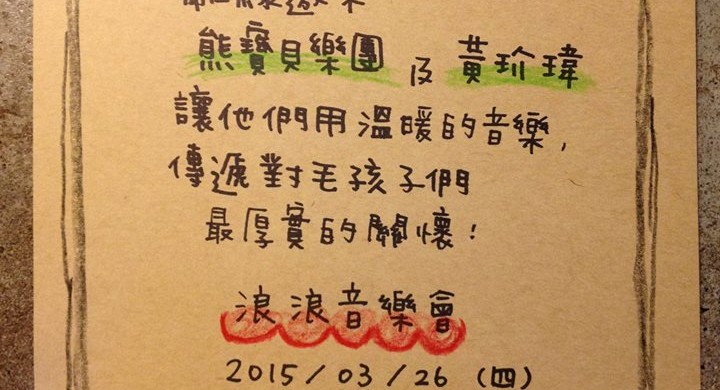 熊寶貝樂團 及 黃玠瑋
讓他們用溫暖的音樂,
傳遞對毛孩子們
最厚實的關懷!
浪浪音樂會
2015/03/26 (四)